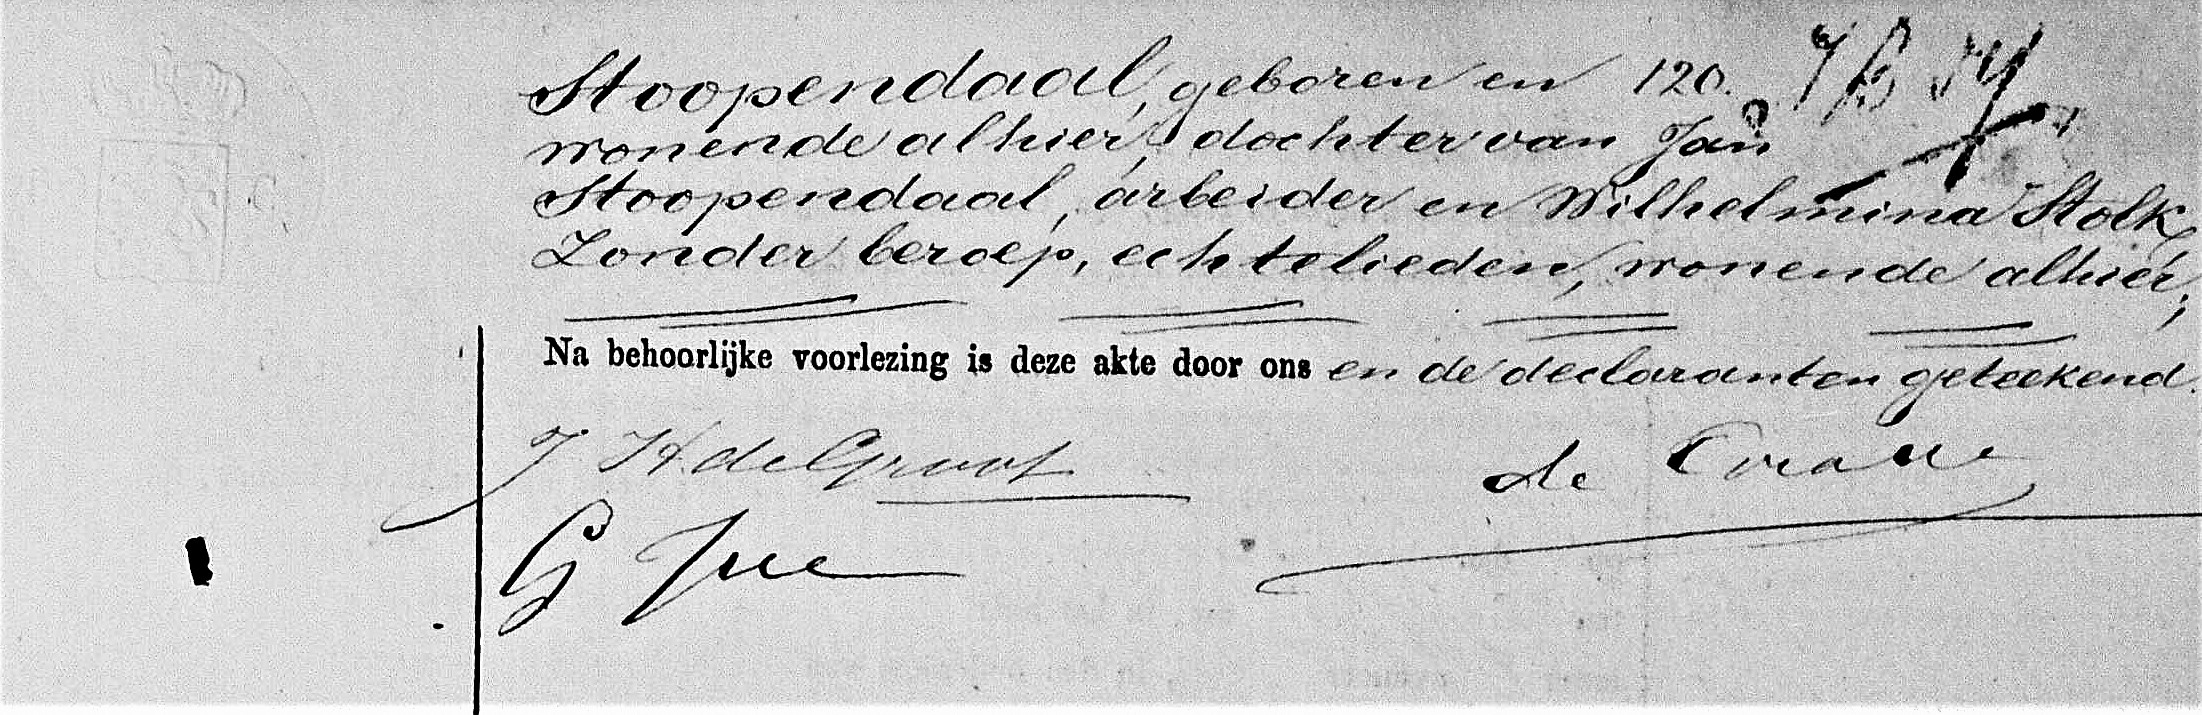 Stoopendaal, geboren en 120.
wonende alhier, dochter van Jan
Stoopendaal, arbeider en Wilhelmina Stolk,
Zonder beroep, echtelieden, wonende alhier,
Na behoorlijke voorlezing is deze akte door ons en de declaranten geteekend.
J H de Groot
de
G